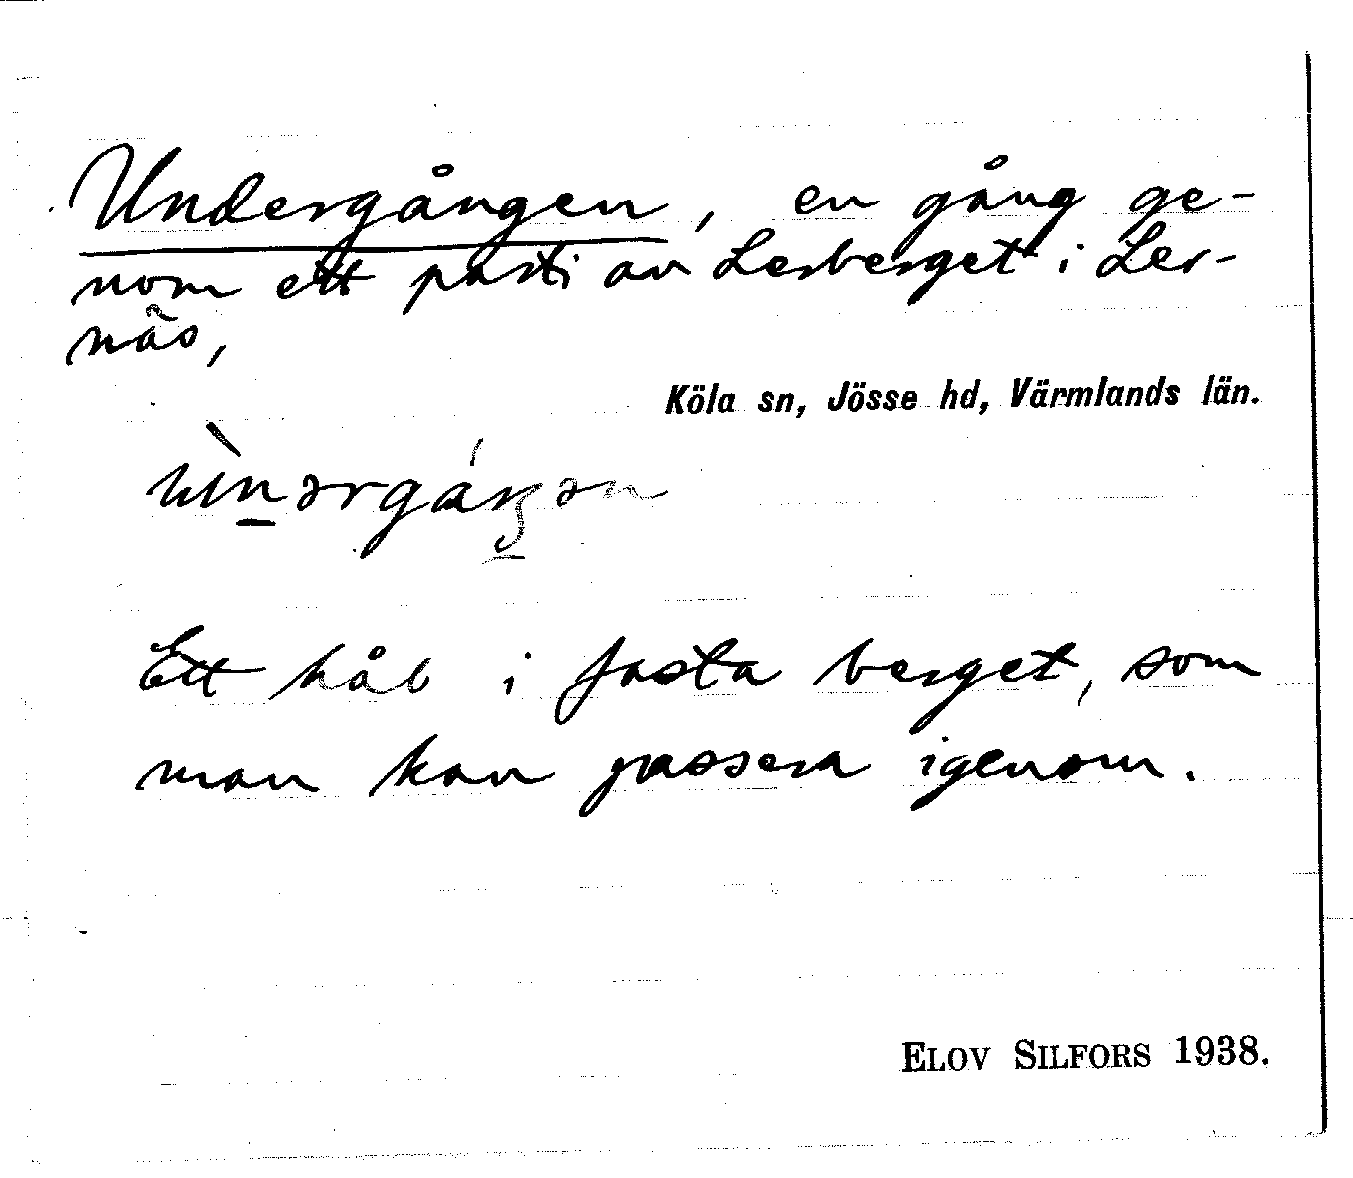 Undergången, en gång ge-
nom ett parti av Lerberget i Ler-
näs,
Köla sn, Jösse hd, Värmlands län.
Ett hål i fasta berget, som
man kan passera igenom.
ELOV SILFORS 1938.